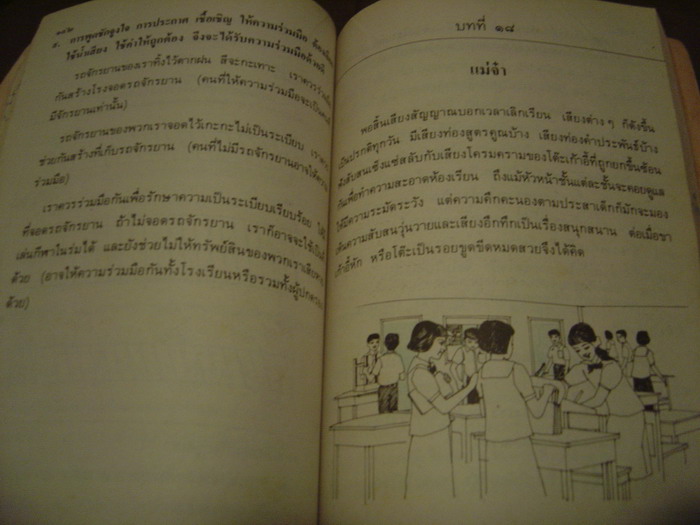 ๑๔๒
๕. การพูดชักจูงใจ การประกาศ เชื้อเชิญ ให้ความร่วมมือ ต้อง
ใช้น้ำเสียง ใช้คำให้ถูกต้อง จึงจะได้รับความร่วมมือด้วยดี
รถจักรยานของเราทิ้งไว้ตากฝน สีจะกะเทาะ เราควร
กันสร้างโรงจอดรถจักรยาน (คนที่ให้ความร่วมมือจะเป็น
มีจักรยานเท่านั้น)
รถจักรยานของพวกเราจอดไว้เกะกะไม่เป็นระเบียบ เรา
ช่วยกันสร้างที่เก็บรถจักรยาน (คนที่ไม่มีรถจักรยานอาจให้
ร่วมมือ)
เราควรร่วมมือกันเพื่อรักษาความเป็นระเบียบเรียบร้อย
ที่จอดรถจักรยาน ถ้าไม่จอดรถจักรยาน เราก็อาจจะใช้เป็น
เล่นกีฬาในร่มได้ และยังช่วยไม่ให้ทรัพย์สินของพวกเรา
ด้วย (อาจให้ความร่วมมือกันทั้งโรงเรียนหรือรวมทั้งผู้ปกครอง
ด้วย)
บทที่ ๑๘
แม่จ๋า
พอสิ้นเสียงสัญญาณบอกเวลาเลิกเรียน เสียงต่าง ๆ ก็ดังขึ้น
เป็นปรกติทุกวัน มีเสียงท่องสูตรคูณบ้าง เสียงท่องคำประพันธ์บ้าง
ดังสับสนเซ็งแซ่สลับกับเสียงโครมครามของโต๊ะเก้าอี้ที่ถูกยกขึ้นซ้อน
กันเพื่อทำความสะอาดห้องเรียน ถึงแม้หัวหน้าชั้นแต่ละชั้นจะคอยดูแล
ให้มีความระมัดระวัง แต่ความคึกคะนองตามประสาเด็กก็มักจะมอง
เห็นความสับสนวุ่นวายและเสียงอึกทึกเป็นเรื่องสนุกสนาน ต่อเมื่อขา
เก้าอี้หัก หรือโต๊ะเป็นรอยขูดขีดหมดสวยจึงได้คิด